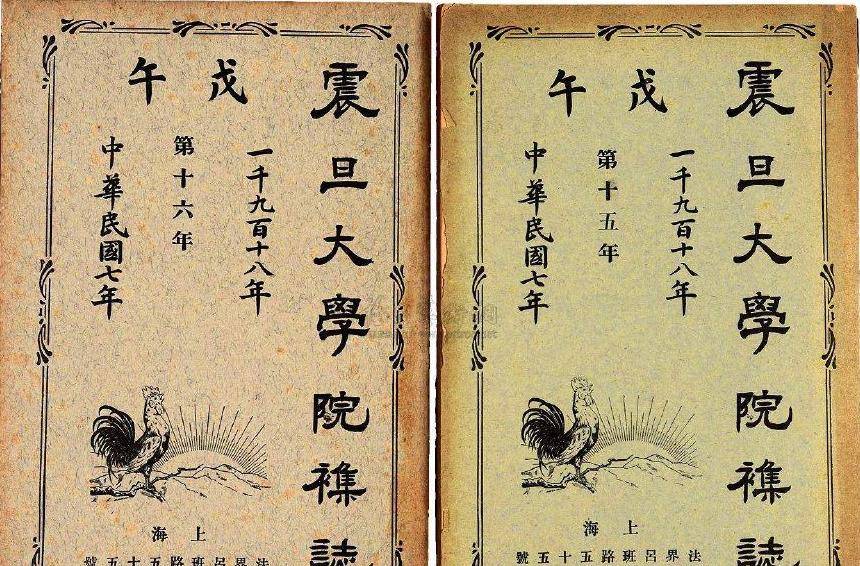 震旦大學院襍誌
戊午
一千九百十八年
第十六年
中華民國七年
上海
法界呂班路五十五號
震旦大學院襍誌
戊午
一千九百十八年
第十五年
中華民國七年
上海
法界呂班路五十五號